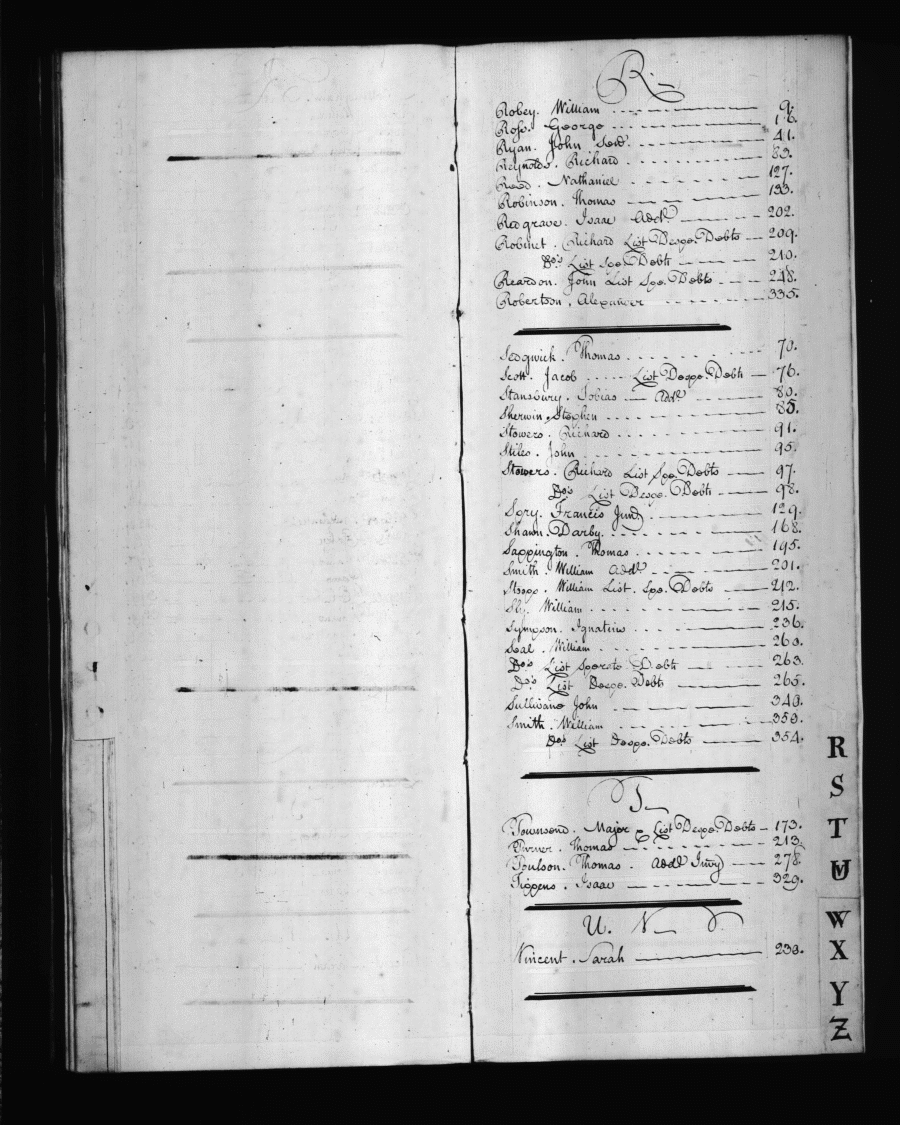 R
Robey. William 9.
Ross. George 16.
Ryan. John Senr. 41.
Reynolds. Richard 83.
Reed. Nathaniel 127.
Robinson. Thomas 133.
Redgrave. Isaac Addl 202.
Robinet. Richard List Despe. Debts 209.
Do's List Spe. Debts 210.
Reardon. John List Spe. Debts 248.
Robertson. Alexander 335.
Sedgwick. Thomas 70.
Scott. Jacob List Despe. Debts 76.
Stansbury. Tobias Addl 80.
Sherwin. Stephen 85.
Stowers. Richard 91.
Stiles. John 95.
Stowers. Richard List Spe. Debts 97.
Do's List Despe. Debts 98.
Spry. Francis Junr 129.
Shawn. Darby. 168.
Sappington. Thomas 195.
Smith. William Addl 201.
William List. Spe. Debts 212.
Sly. William 215.
Sympson. Ignatius 236.
Seal. William 260.
Do's List Sperate Debts 263.
Do's List Despe. Debts 265.
Sullivane John 340.
Smith. William 353.
Do's List Despe. Debts 354.
T
Townsend. Major List Despe. Debts 173.
Turner. Thomas 213.
Poulson. Thomas. Addl Invy 278.
Tippens. Isaac 329.
U. V
Vincent. Sarah 230.
R
S
T
U
W
X
Y
Z